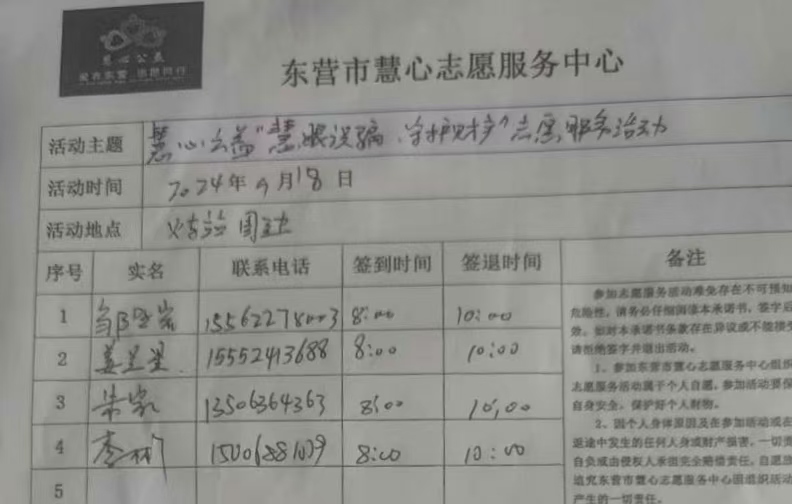 慧心公益
爱在东营 志愿同行
东营市慧心志愿服务中心
活动主题 慧心公益"慧眼识骗、守护财产"志愿服务活动
活动时间 2024年9月18日
活动地点 火车站周边
序号 实名 联系电话 签到时间 签退时间 备注
1 15562278003 8:00 10:00
2 15552413688 8:00 10:00
3 13506364363 8:00 10:00
4 8:00 10:00
5
参加志愿服务活动难免存在不可预知
危险性，请务必仔细阅读本承诺书，签字后
效。如对本承诺书条款存在异议或不能接受
请拒绝签字并退出活动。
1、参加东营市慧心志愿服务中心组织
志愿服务活动属于个人自愿，参加活动要保
自身安全，保护好个人财物。
2、因个人身体原因及在参加活动或在
返途中发生的任何人身或财产损害，一切责
自负或由侵权人承担完全赔偿责任，自愿放
追究东营市慧心志愿服务中心因组织活动
产生的一切责